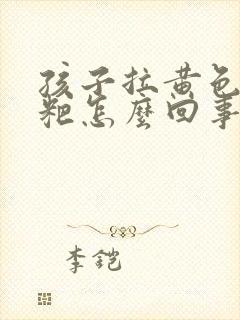 孩子拉黄色
粑怎麼回事
李铠